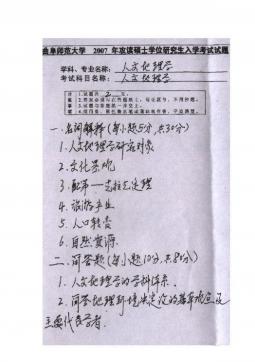 曲阜师范大学 2007 年攻读硕士学位研究生入学考试试题
学科、专业名称: 人文地理学
考试科目名称: 人文地理学
一.名词解释(每小题5分,共30分)
1.人文地理学研究对象
2.文化景观
3.配第—克拉克定理
4.旅游产业
5.人口转变
6.自然资源
二.简答题(每小题10分,共80分)
1.人文地理学的学科体系.
2.简答地理环境决定论的基本观点及
主要代表学者.